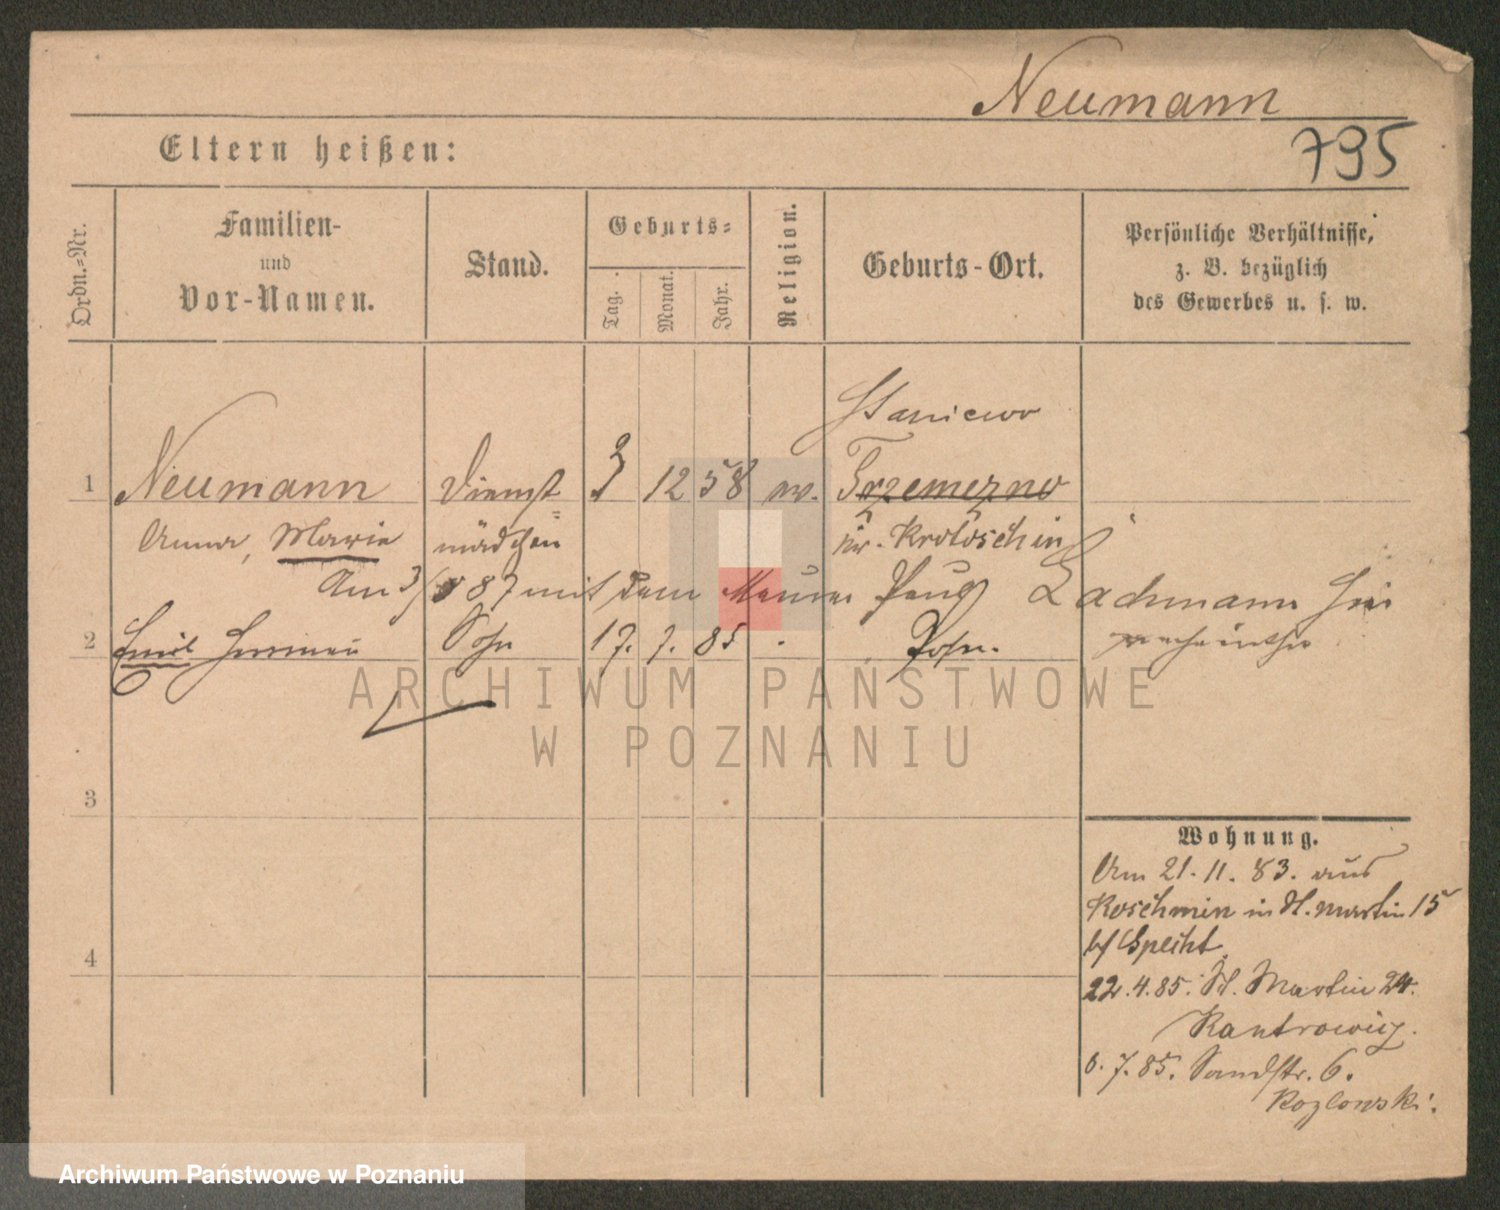 Neumann
795
Eltern heißen:
Ordn.-Nr.
Familien-
und
Vor-Namen.
Stand.
Geburts-
Tag.
Monat.
Jahr.
Religion.
Geburts-Ort.
Persönliche Verhältnisse,
z. B. bezüglich
des Gewerbes u. s. w.
Staniewo
1 Neumann Dienst= 3 12 58 ev. Trzemezno
Anna, Marie mädchen kr. Krotoschin
Am 3/ 87 mit dem Maurer Paul Lachmann hier
2 Emil Herman Sohn 17. 7. 85 Posen. verheirathet
ARCHIWUM PAŃSTWOWE
W POZNANIU
3
4
Wohnung.
Am 21. 11. 83. aus
Koschmin in St. Martin 15
b/ Specht.
22.4.85. St. Martin 24.
Kantrowicz.
6. 7. 85. Sandstr. 6.
Kozlowski.
Archiwum Państwowe w Poznaniu